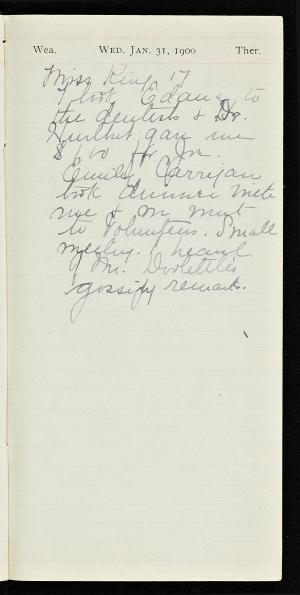 Wea. WED. JAN. 31, 1900 Ther.
Miss King 17
I took Edana to
the dentists & Dr.
Hurlbut gave me
$
Emily Carrigan
took dinner with
me & we went
to Volunteers. Small
meeting. I heard
of Mr. Doolittle's
gossipy remarks.